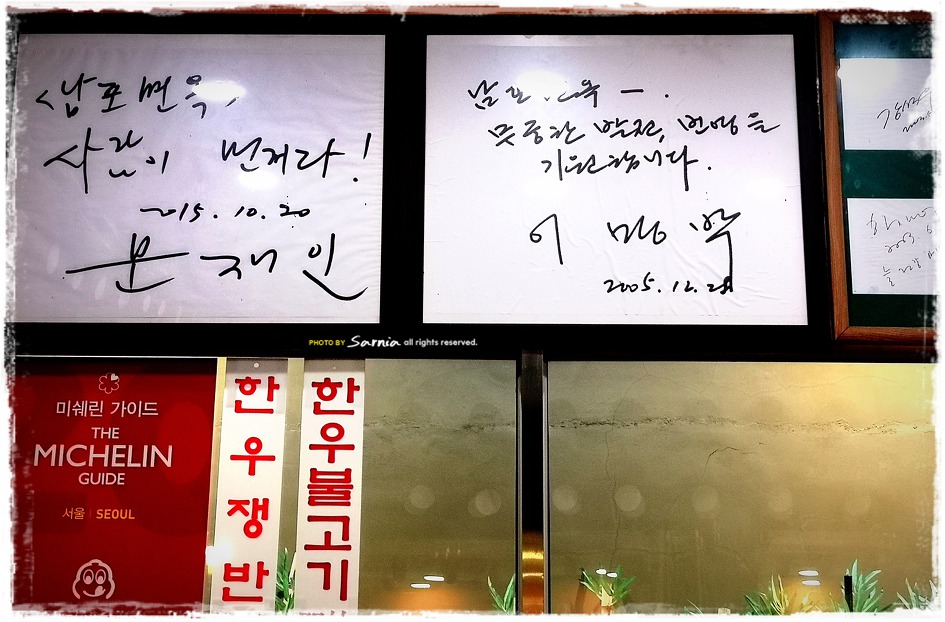 <남포면옥,
사람이 먼저다!
2015. 10. 20
문재인
남포면옥 - .
무궁한 발전, 번영을
기원합니다.
이 명 박
2005. 12. 28
PHOTO BY Sarnia all rights reserved.
미쉐린 가이드
THE
MICHELIN
GUIDE
서울 | SEOUL
한우쟁반
한우불고기